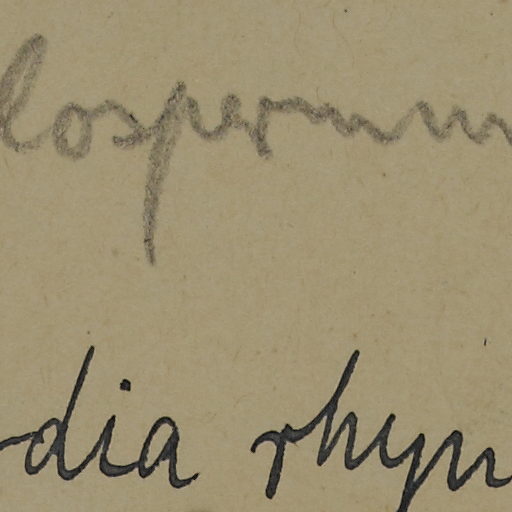 lospermum
dia rhyn